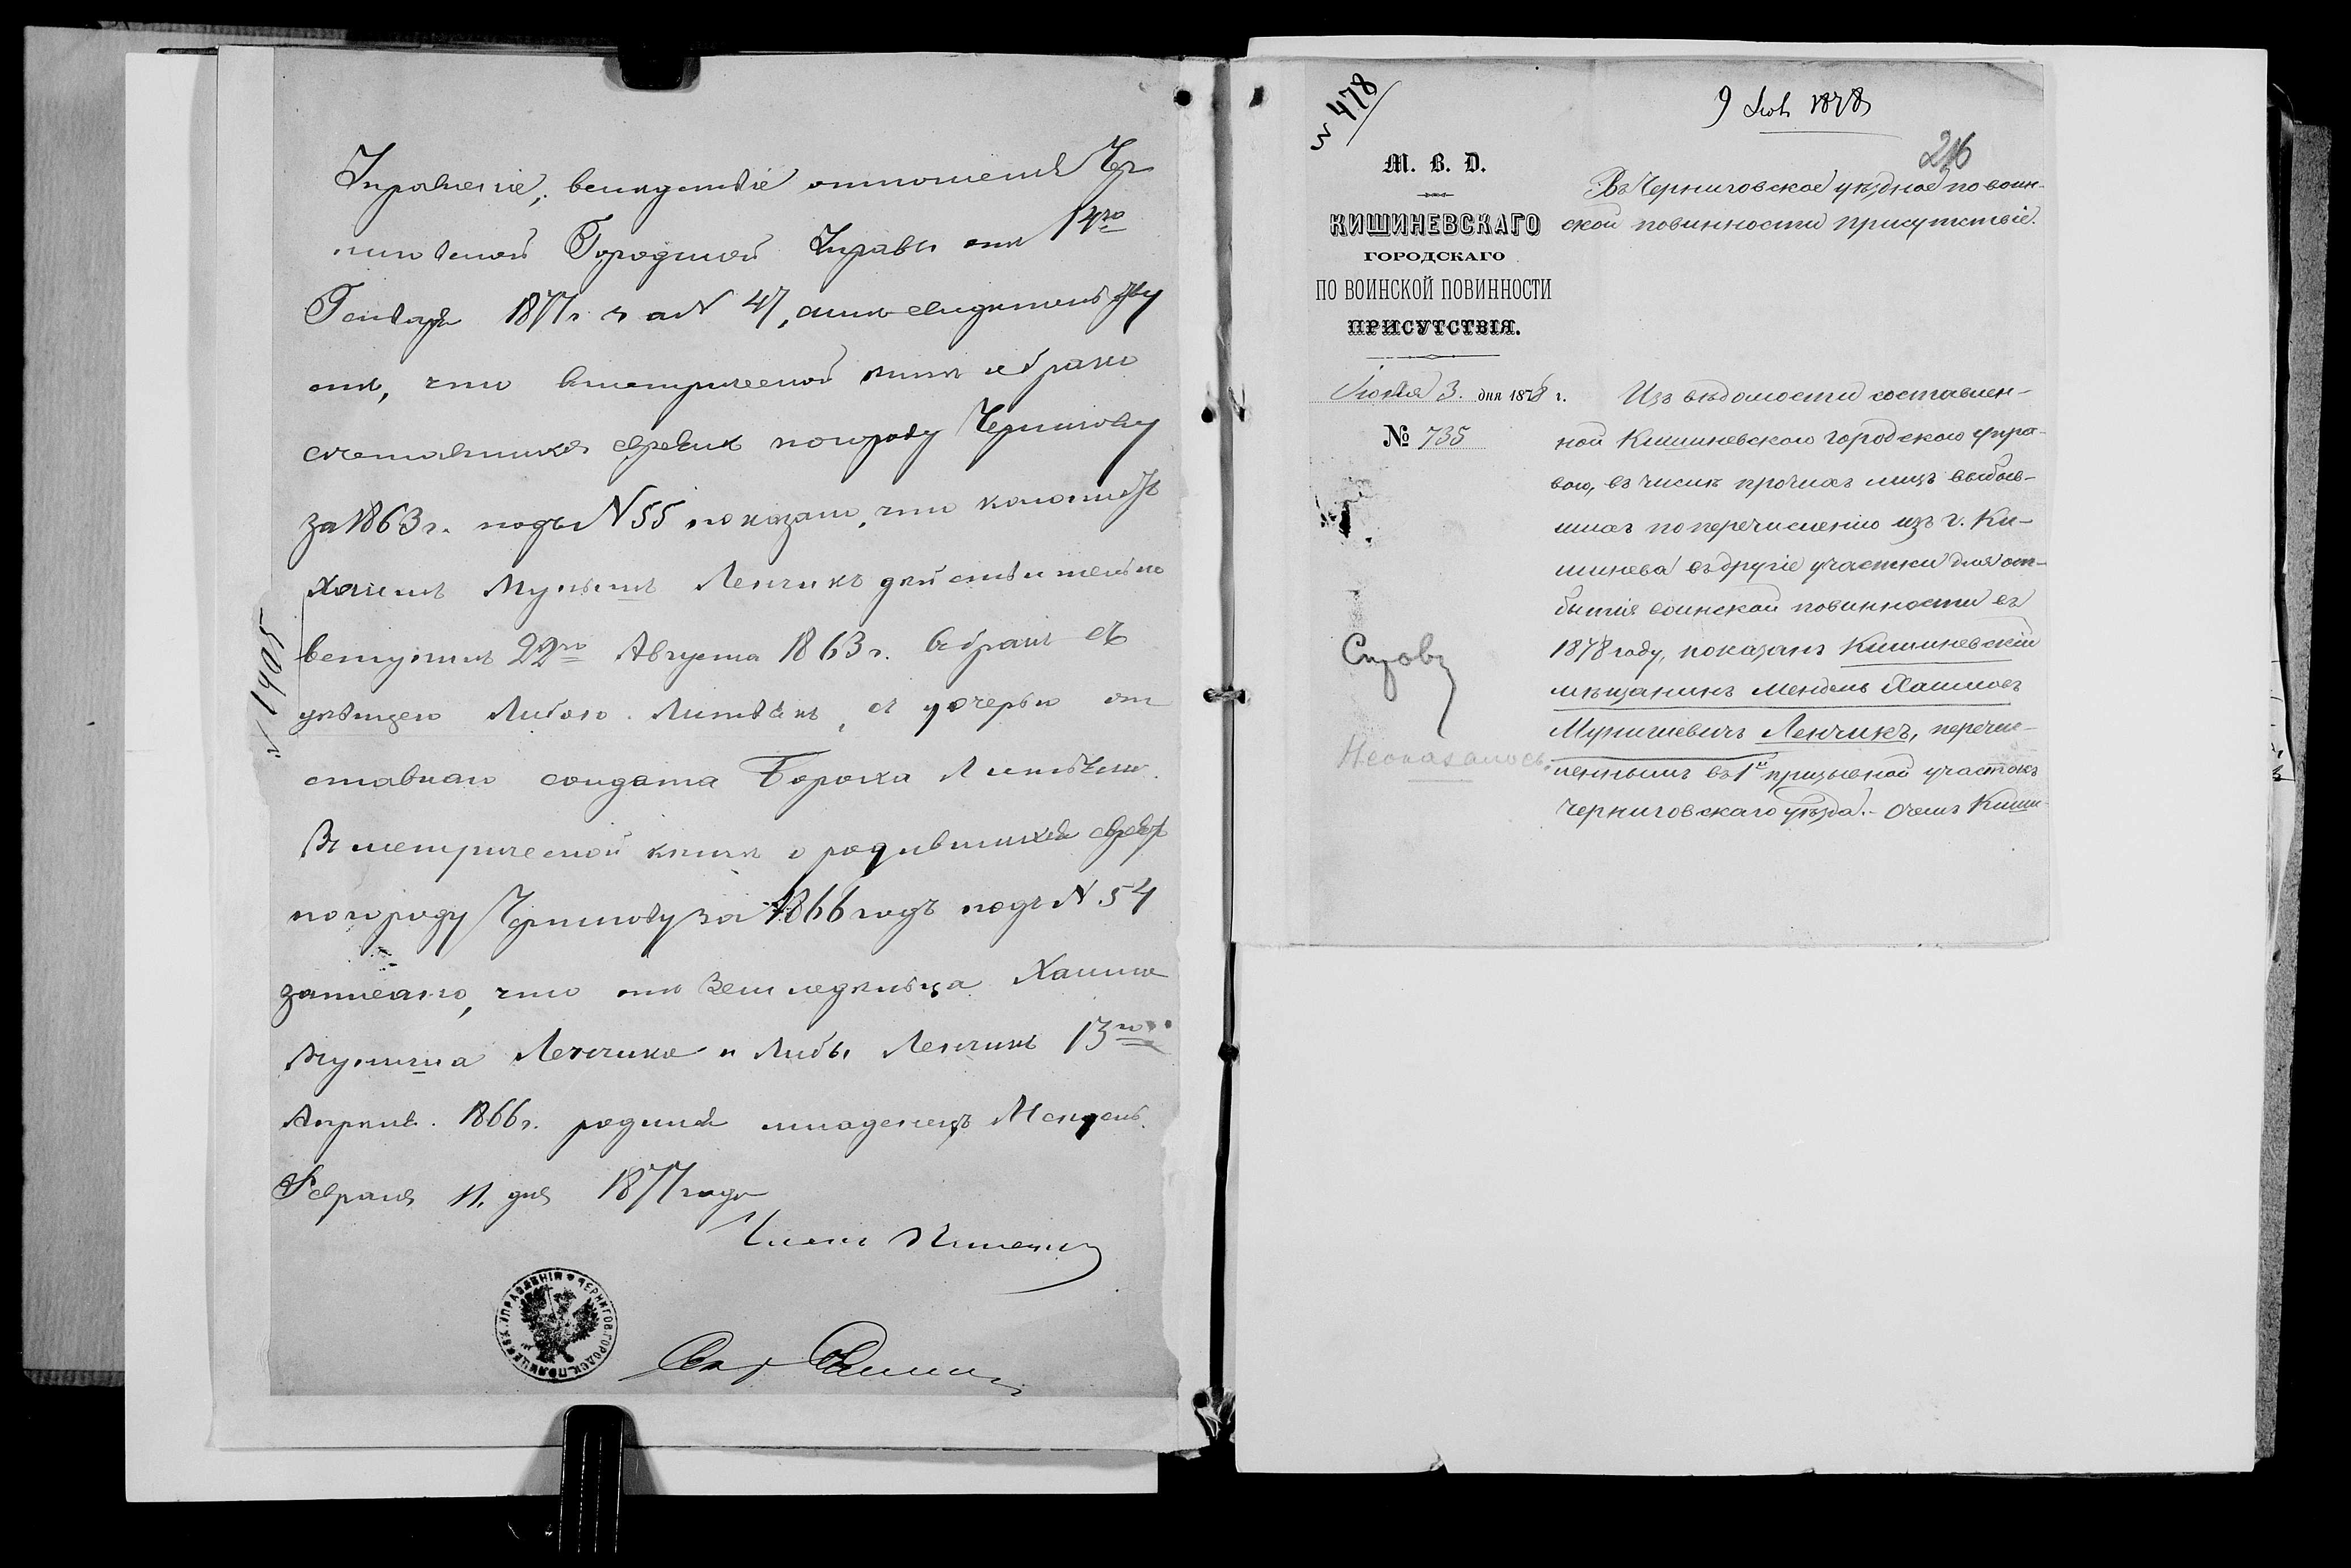 Управленіе, вследствіе отношенія Чер
ниговской Городской Управы отъ 14го
Генваря 1877 г. за № 47, симъ свидетельству
етъ, что в метрической книге о брако
сочетавшихся евреяхъ по городу Чернигову
за 1863 г. подъ № 55 показано, что колонистъ
Хаимъ Мунышъ Ленчикъ действительно
вступилъ 22го Августа 1863 г. въ бракъ съ
девицею Либою Литвакъ, дочерью от
ставнаго солдата Бороха
В метрической книге о родившихся евреяхъ
по городу Чернигову за 1866 годъ подъ № 54
записано, что отъ Земледельца Хаима
Муниша Ленчика и Либы Ленчикъ 13го
Апреля 1866 г. родился младенецъ Мендель.
Февраля 11 дня 1877 года
Членъ
Секр
ЧЕРНИГОВ. ГОРОДСК. ПОЛИЦЕЙСК. УПРАВЛЕНІЯ
№ 1905
№ 478
9 Іюля 1878
216
М. В. Д.
КИШИНЕВСКАГО
ГОРОДСКАГО
ПО ВОИНСКОЙ ПОВИННОСТИ
ПРИСУТСТВІЯ.
Іюля 3. дня 1878 г.
№ 735
Справ
Неоказалось.
Въ Черниговское уѣздное по воин-
ской повинности присутствіе.
Изъ вѣдомости составлен-
ной Кишиневскою городскою упра-
вою, въ числѣ прочихъ лицъ выбыв-
шихъ по перечисленію изъ г. Ки-
шинева въ другіе участки для от-
бытія воинской повинности въ
1878 году, показанъ Кишиневскій
мѣщанинъ Мендель Хаимовъ
Мунишевичъ Ленчикъ, перечис-
леннымъ въ 1й призывной участокъ
Черниговскаго уѣзда. – О чемъ Киши-